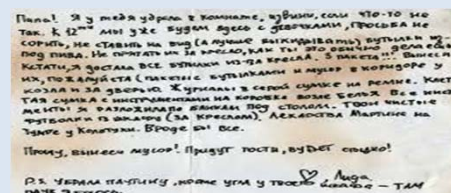 Папа! Я у тебя убрала в комнате, извини, если что-то не
так. К 12 мы уже будем здесь с девочками, просьба не
сорить, не ставить на вид (а лучше выкидывать) бутылки из-
под пива. Не прятать их за кресло, как ты это обычно делаешь
Кстати, я достала все бутылки из-за кресла. 5 пакета!!! Вынеси
их, пожалуйста (пакеты с бутылками и мусор в коридоре у
и за дверью. Журналы в серой сумке на ремне.
сумка с инструментами на коробке возле белья. Все
я разложила под столом. Твои чистые
футболки в (за креслом). Лекарства Мартине на
Вроде бы все.
Прошу, вынеси мусор! Придут гости, будет стыдно!
P.S. Убрала паутину, возле угла у твоего — там